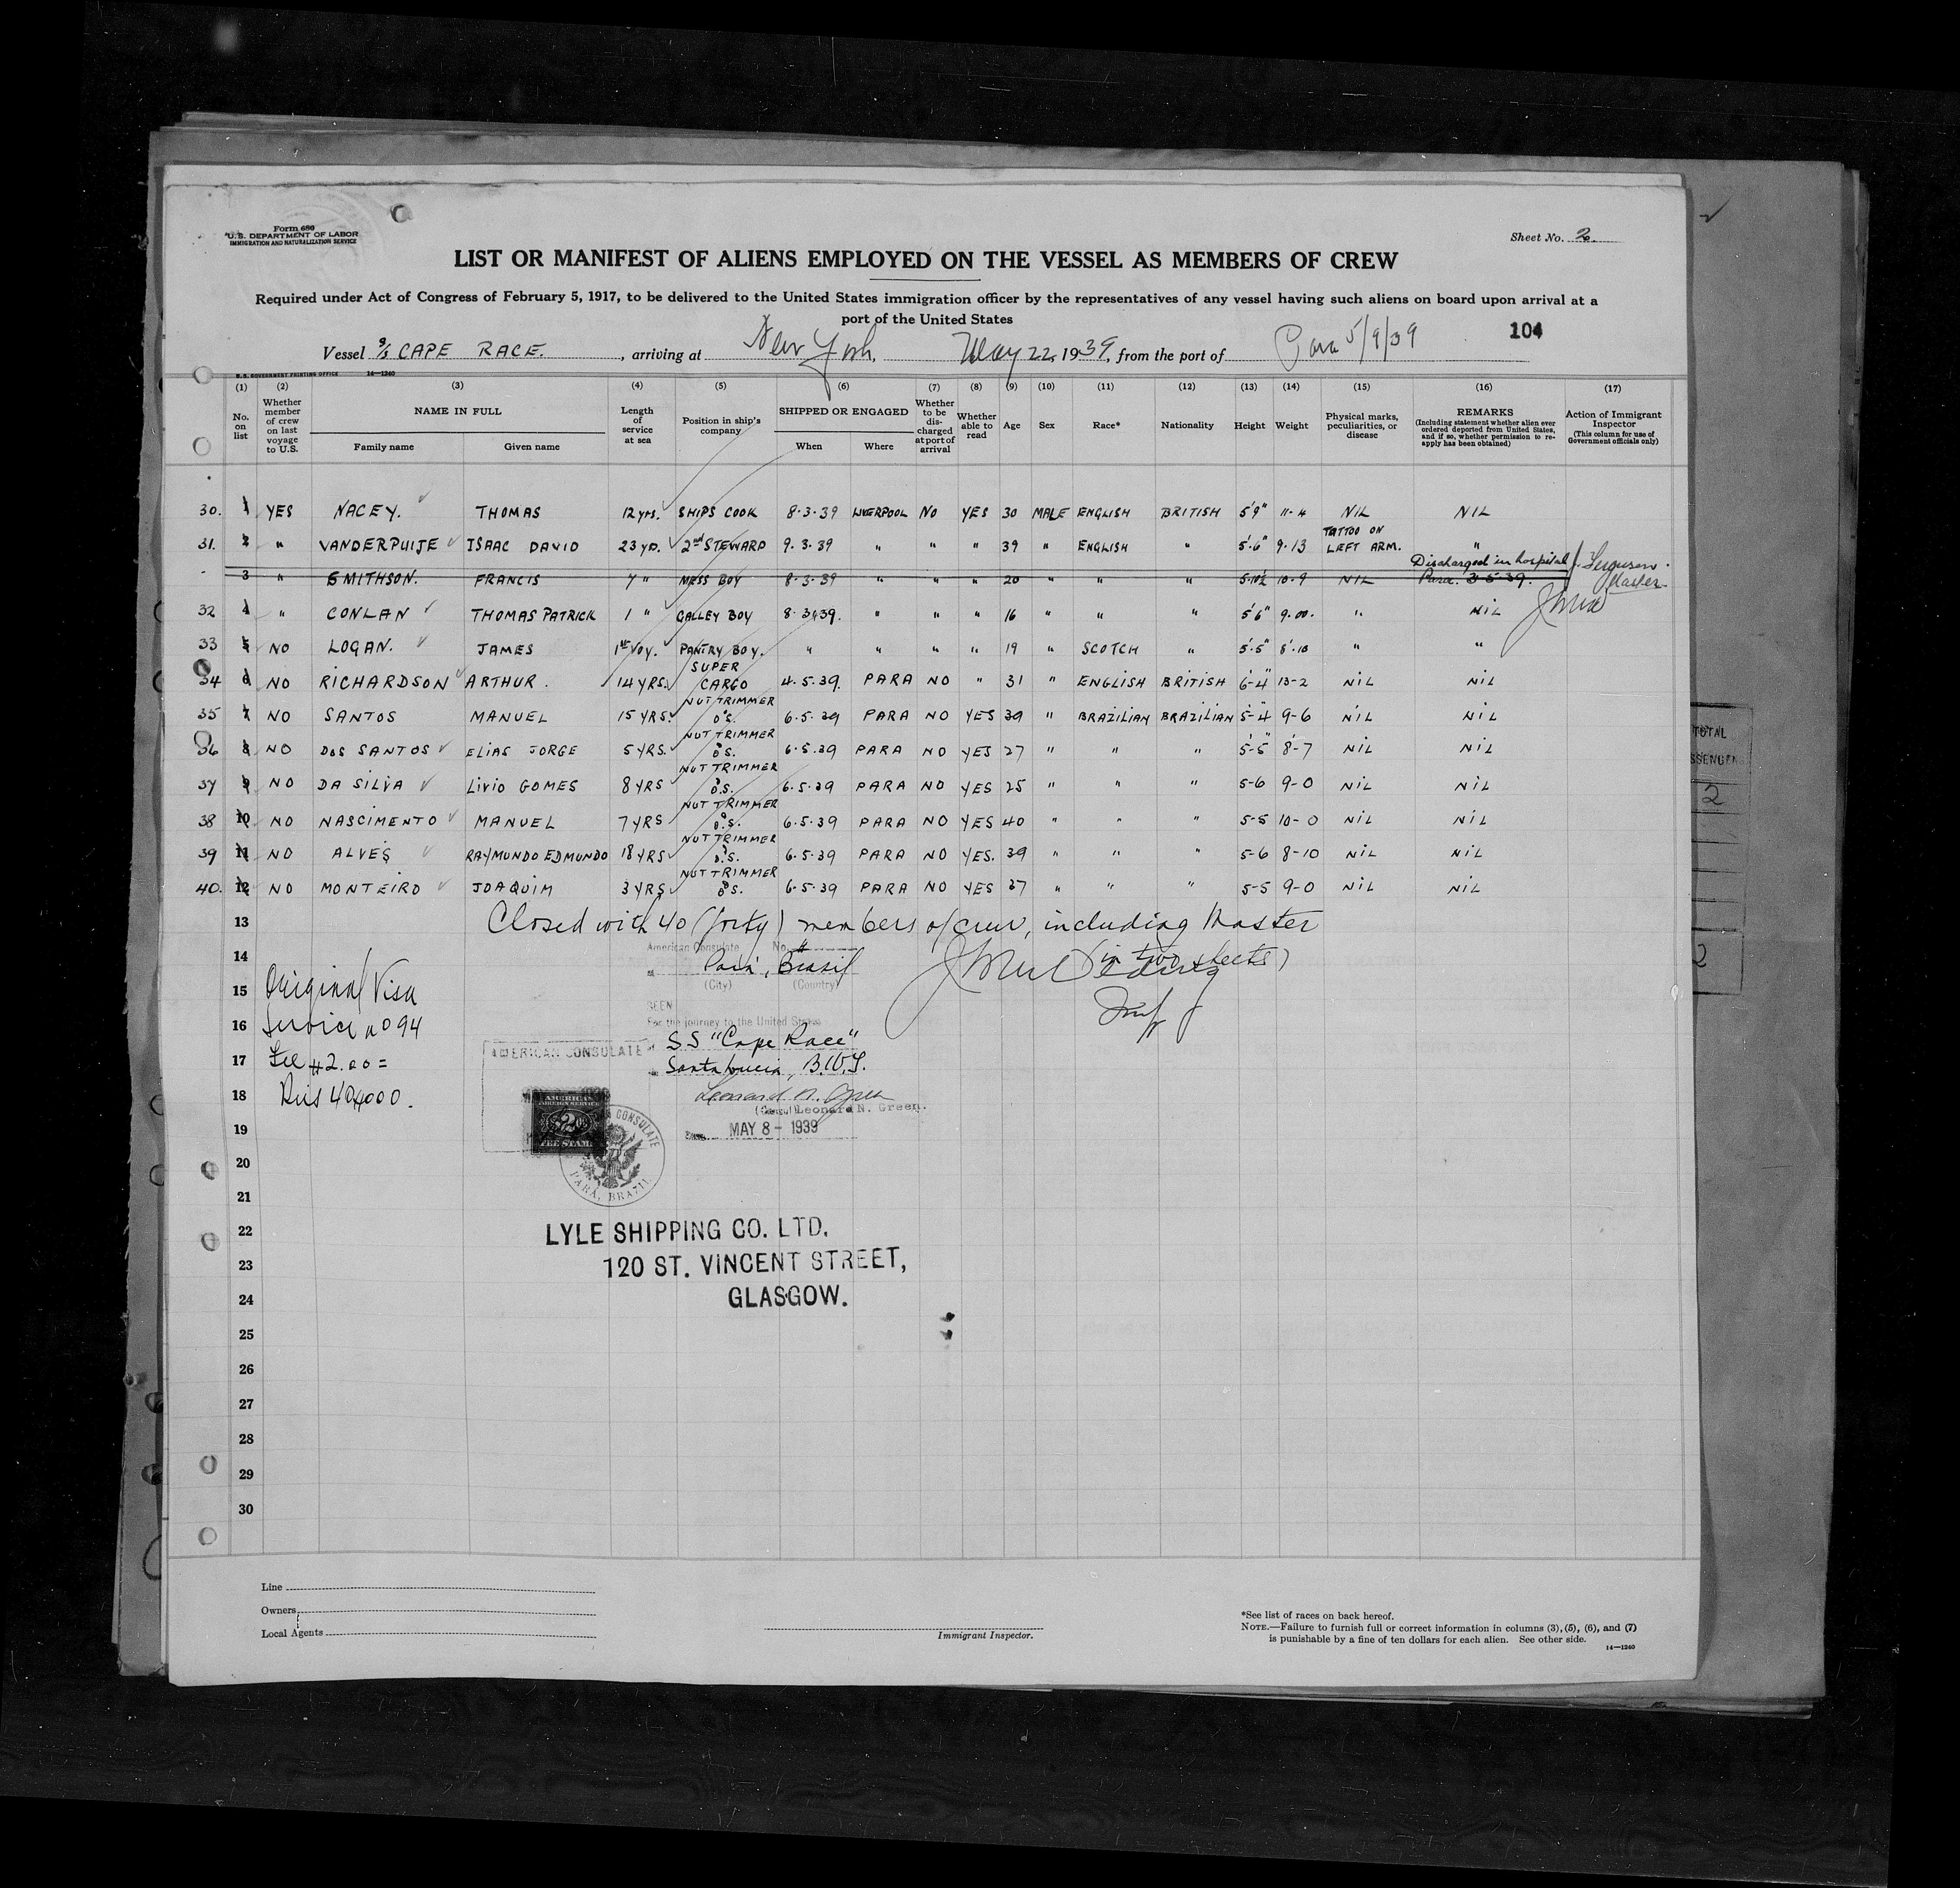 Form 680
U.S. DEPARTMENT OF LABOR
IMMIGRATION AND NATURALIZATION SERVICE
Sheet No. 2.
LIST OR MANIFEST OF ALIENS EMPLOYED ON THE VESSEL AS MEMBERS OF CREW
Required under Act of Congress of February 5, 1917, to be delivered to the United States immigration officer by the representatives of any vessel having such aliens on board upon arrival at a
port of the United States
104
Vessel S/S CAPE RACE., arriving at New York, May 22, 1939, from the port of Para 5/9/39
U.S. GOVERNMENT PRINTING OFFICE 14—1240
(1) (2) (3) (4) (5) (6) (7) (8) (9) (10) (11) (12) (13) (14) (15) (16) (17)
No. on list
Whether member of crew on last voyage to U.S.
NAME IN FULL
Family name Given name
Length of service at sea
Position in ship's company
SHIPPED OR ENGAGED
When Where
Whether to be discharged at port of arrival
Whether able to read
Age
Sex
Race*
Nationality
Height
Weight
Physical marks, peculiarities, or disease
REMARKS
(Including statement whether alien ever ordered deported from United States, and if so, whether permission to reapply has been obtained)
Action of Immigrant Inspector
(This column for use of Government officials only)
30. 1 YES NACEY. THOMAS 12 yrs. SHIPS COOK 8.3.39 LIVERPOOL NO YES 30 MALE ENGLISH BRITISH 5'9" 11-4 NIL NIL
31. 2 " VANDERPUIJE ISAAC DAVID 23 YD. 2nd STEWARD 9.3.39 " " " 39 " ENGLISH " 5'.6" 9.13 TATTOO ON LEFT ARM. "
3 " SMITHSON. FRANCIS 7 " MESS BOY 8.3.39 " " " 20 " " " 5.10½ 10-9 NIL Discharged in hospital Para. 3.5.39. J. Ferguson. Master
32 4 " CONLAN THOMAS PATRICK 1 " GALLEY BOY 8.3.39. " " " 16 " " " 5'6" 9.00. " NIL
33 5 NO LOGAN. JAMES 1st VOY. PANTRY BOY. " " " " 19 " SCOTCH " 5'.5" 8'.10 " "
34 6 NO RICHARDSON ARTHUR. 14 YRS. SUPER CARGO 4.5.39. PARA NO " 31 " ENGLISH BRITISH 6-4" 13-2 NIL NIL
35 7 NO SANTOS MANUEL 15 YRS. NUT TRIMMER O.S. 6.5.39 PARA NO YES 39 " BRAZILIAN BRAZILIAN 5-4 9-6 NIL NIL
36 8 NO DOS SANTOS ELIAS JORGE 5 YRS. NUT TRIMMER O.S. 6.5.39 PARA NO YES 27 " " " 5-5" 8-7 NIL NIL
37 9 NO DA SILVA LIVIO GOMES 8 YRS NUT TRIMMER O.S. 6.5.39 PARA NO YES 25 " " " 5-6 9-0 NIL NIL
38 10 NO NASCIMENTO MANUEL 7 YRS NUT TRIMMER O.S. 6.5.39 PARA NO YES 40 " " " 5-5 10-0 NIL NIL
39 11 NO ALVES RAYMUNDO EDMUNDO 18 YRS NUT TRIMMER O.S. 6.5.39 PARA NO YES. 39 " " " 5-6 8-10 NIL NIL
40. 12 NO MONTEIRO JOAQUIM 3 YRS NUT TRIMMER O.S. 6.5.39 PARA NO YES 27 " " " 5-5 9-0 NIL NIL
13 Closed with 40 (forty) members of crew, including Master
(in two sheets)
American Consulate No.
14 Pará, Brasil
(City) (Country)
15 Original Visa
SEEN
For the journey to the United States
16 Service no 94
S.S "Cape Race"
AMERICAN CONSULATE
17 Fee $2.00=
Santa Lucia, B.W.I.
18 Rs 40$000.
Leonard N. Green
Leonard N. Green.
19 MAY 8 - 1939
AMERICAN FOREIGN SERVICE
FEE STAMP
CONSULATE
PARÁ, BRAZIL
20
21
22 LYLE SHIPPING CO. LTD.
23 120 ST. VINCENT STREET,
24 GLASGOW.
25
26
27
28
29
30
Line
Owners
Local Agents
Immigrant Inspector.
*See list of races on back hereof.
NOTE.—Failure to furnish full or correct information in columns (3), (5), (6), and (7)
is punishable by a fine of ten dollars for each alien. See other side. 14—1240
TOTAL
2
2